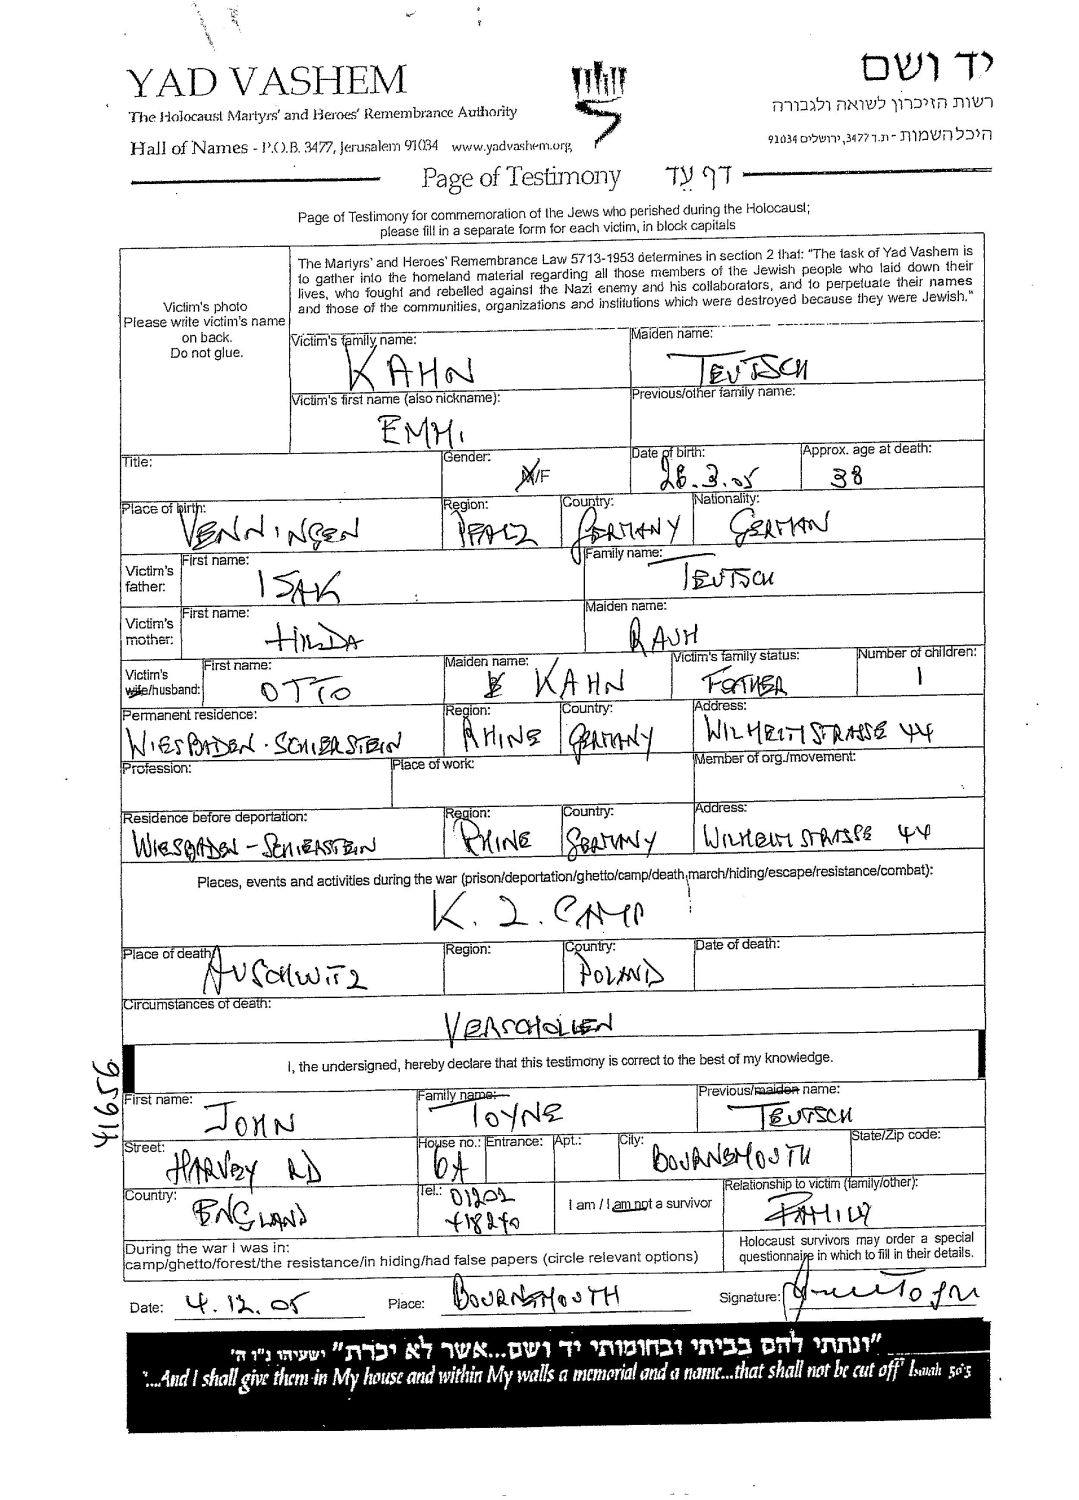 YAD VASHEM
The Holocaust Martyrs' and Heroes' Remembrance Authority
Hall of Names - P.O.B. 3477, Jerusalem 91034 www.yadvashem.org
יד ושם
רשות הזיכרון לשואה ולגבורה
היכל השמות - ת.ד 3477, ירושלים 91034
Page of Testimony דף עד
Page of Testimony for commemoration of the Jews who perished during the Holocaust;
please fill in a separate form for each victim, in block capitals
Victim's photo
Please write victim's name
on back.
Do not glue.
The Martyrs' and Heroes' Remembrance Law 5713-1953 determines in section 2 that: "The task of Yad Vashem is
to gather into the homeland material regarding all those members of the Jewish people who laid down their
lives, who fought and rebelled against the Nazi enemy and his collaborators, and to perpetuate their names
and those of the communities, organizations and institutions which were destroyed because they were Jewish."
Victim's family name: Maiden name:
KAHN TEUTSCH
Victim's first name (also nickname): Previous/other family name:
EMMI
Title: Gender: M/F Date of birth: Approx. age at death:
28.3.05 38
Place of birth: Region: Country: Nationality:
VENNINGEN PFALZ GERMANY GERMAN
Victim's father: First name: Family name:
ISAK TEUTSCH
Victim's mother: First name: Maiden name:
HILDA RAUH
Victim's wife/husband: First name: Maiden name: Victim's family status: Number of children:
OTTO KAHN 1
Permanent residence: Region: Country: Address:
WIESBADEN - SCHIERSTEIN RHINE GERMANY WILHELMSTRASSE 44
Profession: Place of work: Member of org./movement:
Residence before deportation: Region: Country: Address:
WIESBADEN - SCHIERSTEIN RHINE GERMANY WILHELMSTRASSE 44
Places, events and activities during the war (prison/deportation/ghetto/camp/death march/hiding/escape/resistance/combat):
K. Z. CAMP
Place of death: Region: Country: Date of death:
AUSCHWITZ POLAND
Circumstances of death:
VERSCHOLLEN
I, the undersigned, hereby declare that this testimony is correct to the best of my knowledge.
41656
First name: Family name: Previous/maiden name:
JOHN TOYNE TEUTSCH
Street: House no.: Entrance: Apt.: City: State/Zip code:
HARVEY RD 6A BOURNEMOUTH
Country: Tel.: I am / I am not a survivor Relationship to victim (family/other):
ENGLAND 01202 418240 FAMILY
During the war I was in:
camp/ghetto/forest/the resistance/in hiding/had false papers (circle relevant options)
Holocaust survivors may order a special
questionnaire in which to fill in their details.
Date: 4.12.05 Place: BOURNEMOUTH Signature:
"ונתתי להם בביתי ובחומותי יד ושם...אשר לא יכרת" ישעיהו נ"ו ה'
"...And I shall give them in My house and within My walls a memorial and a name...that shall not be cut off" Isaiah 56:5